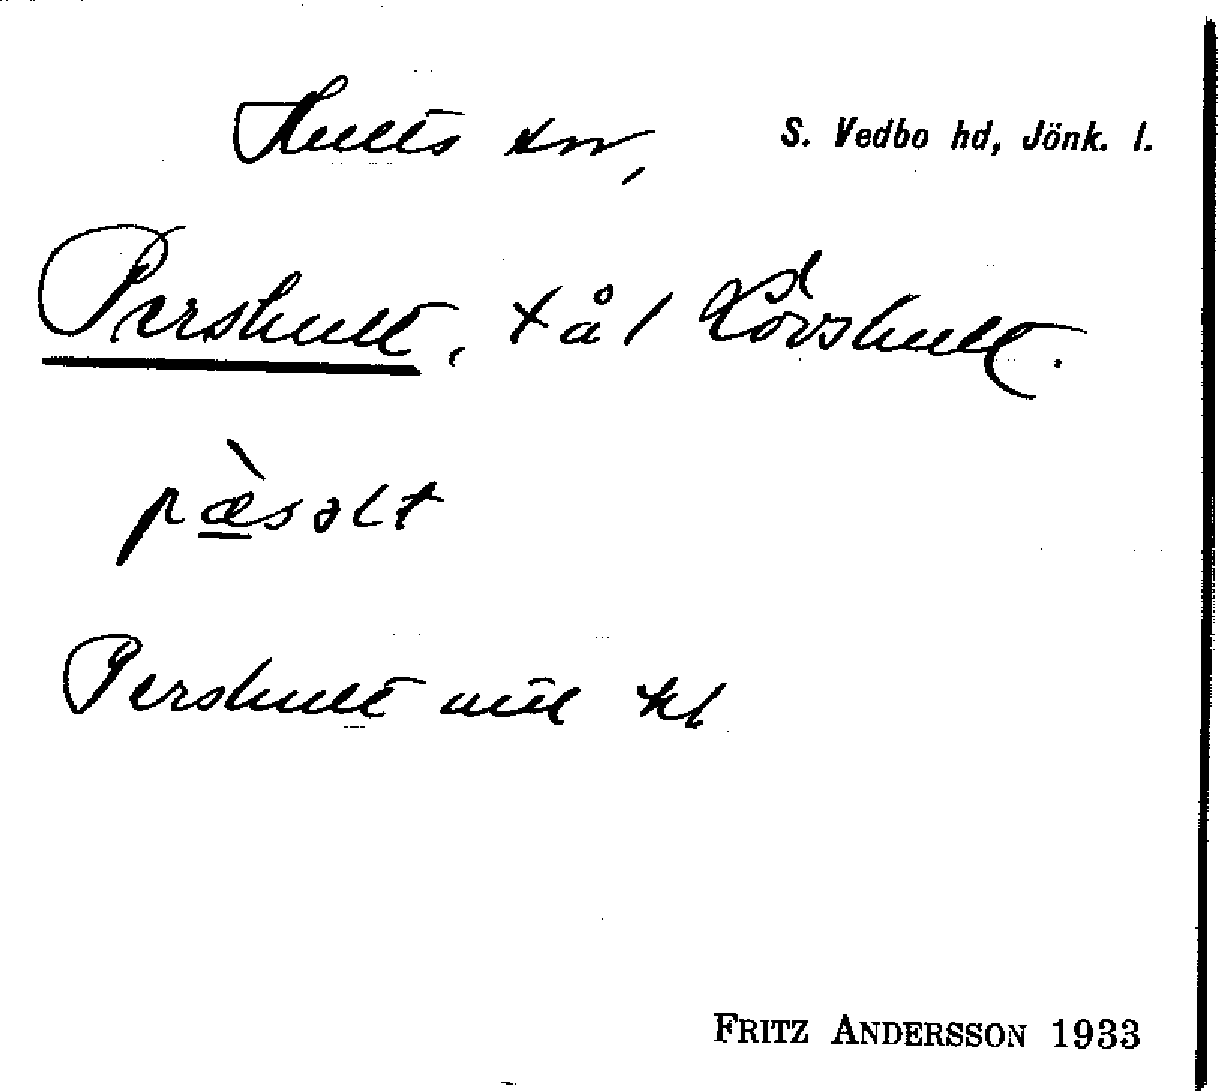 Hults sn, S. Vedbo hd, Jönk. l.
Pershult, t å / Lövshult.
pæ̀səlt
Pershult
FRITZ ANDERSSON 1933